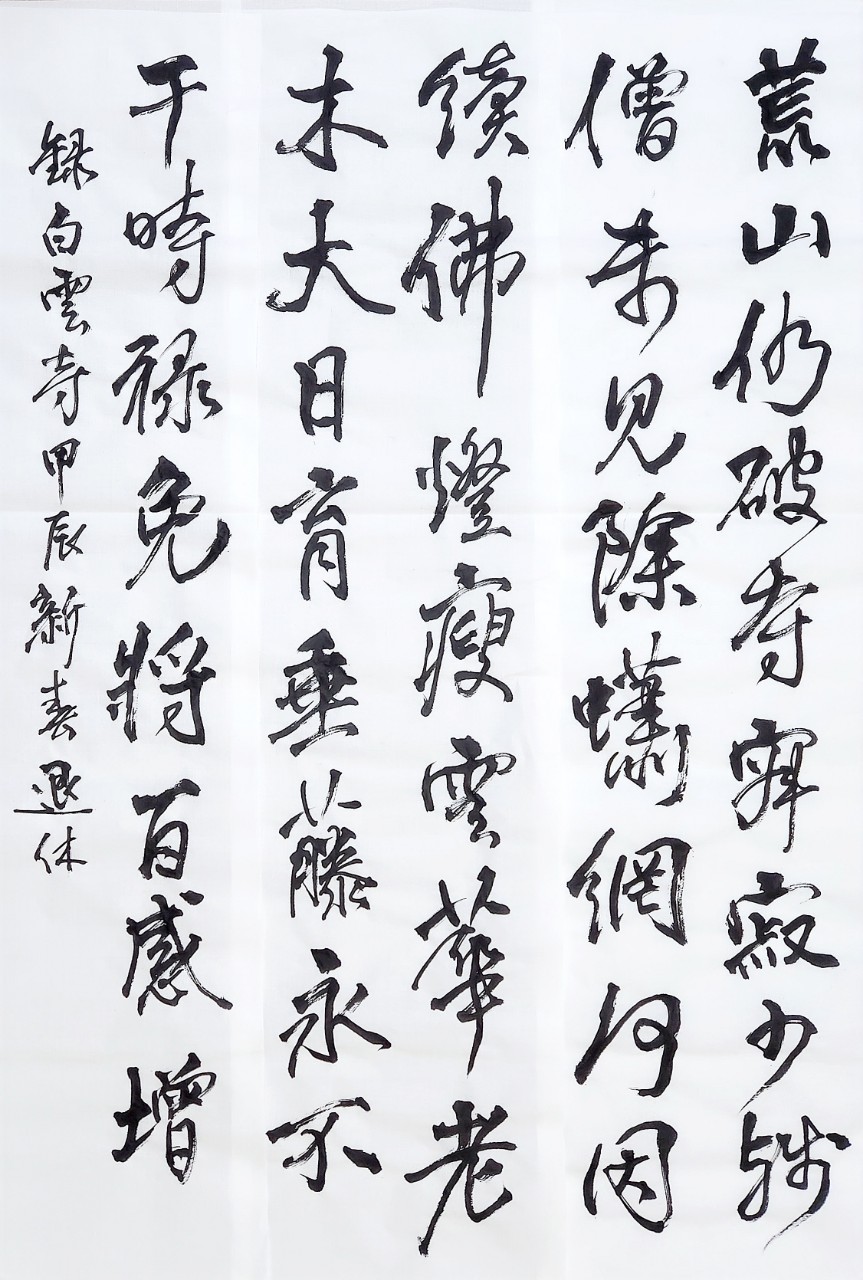 荒山仍破寺寂少殘
僧未見除蠨網何因
續佛燈瘦雲華老
木大日育垂藤永不
干時祿免將百感增
録白雲寺甲辰新春退休